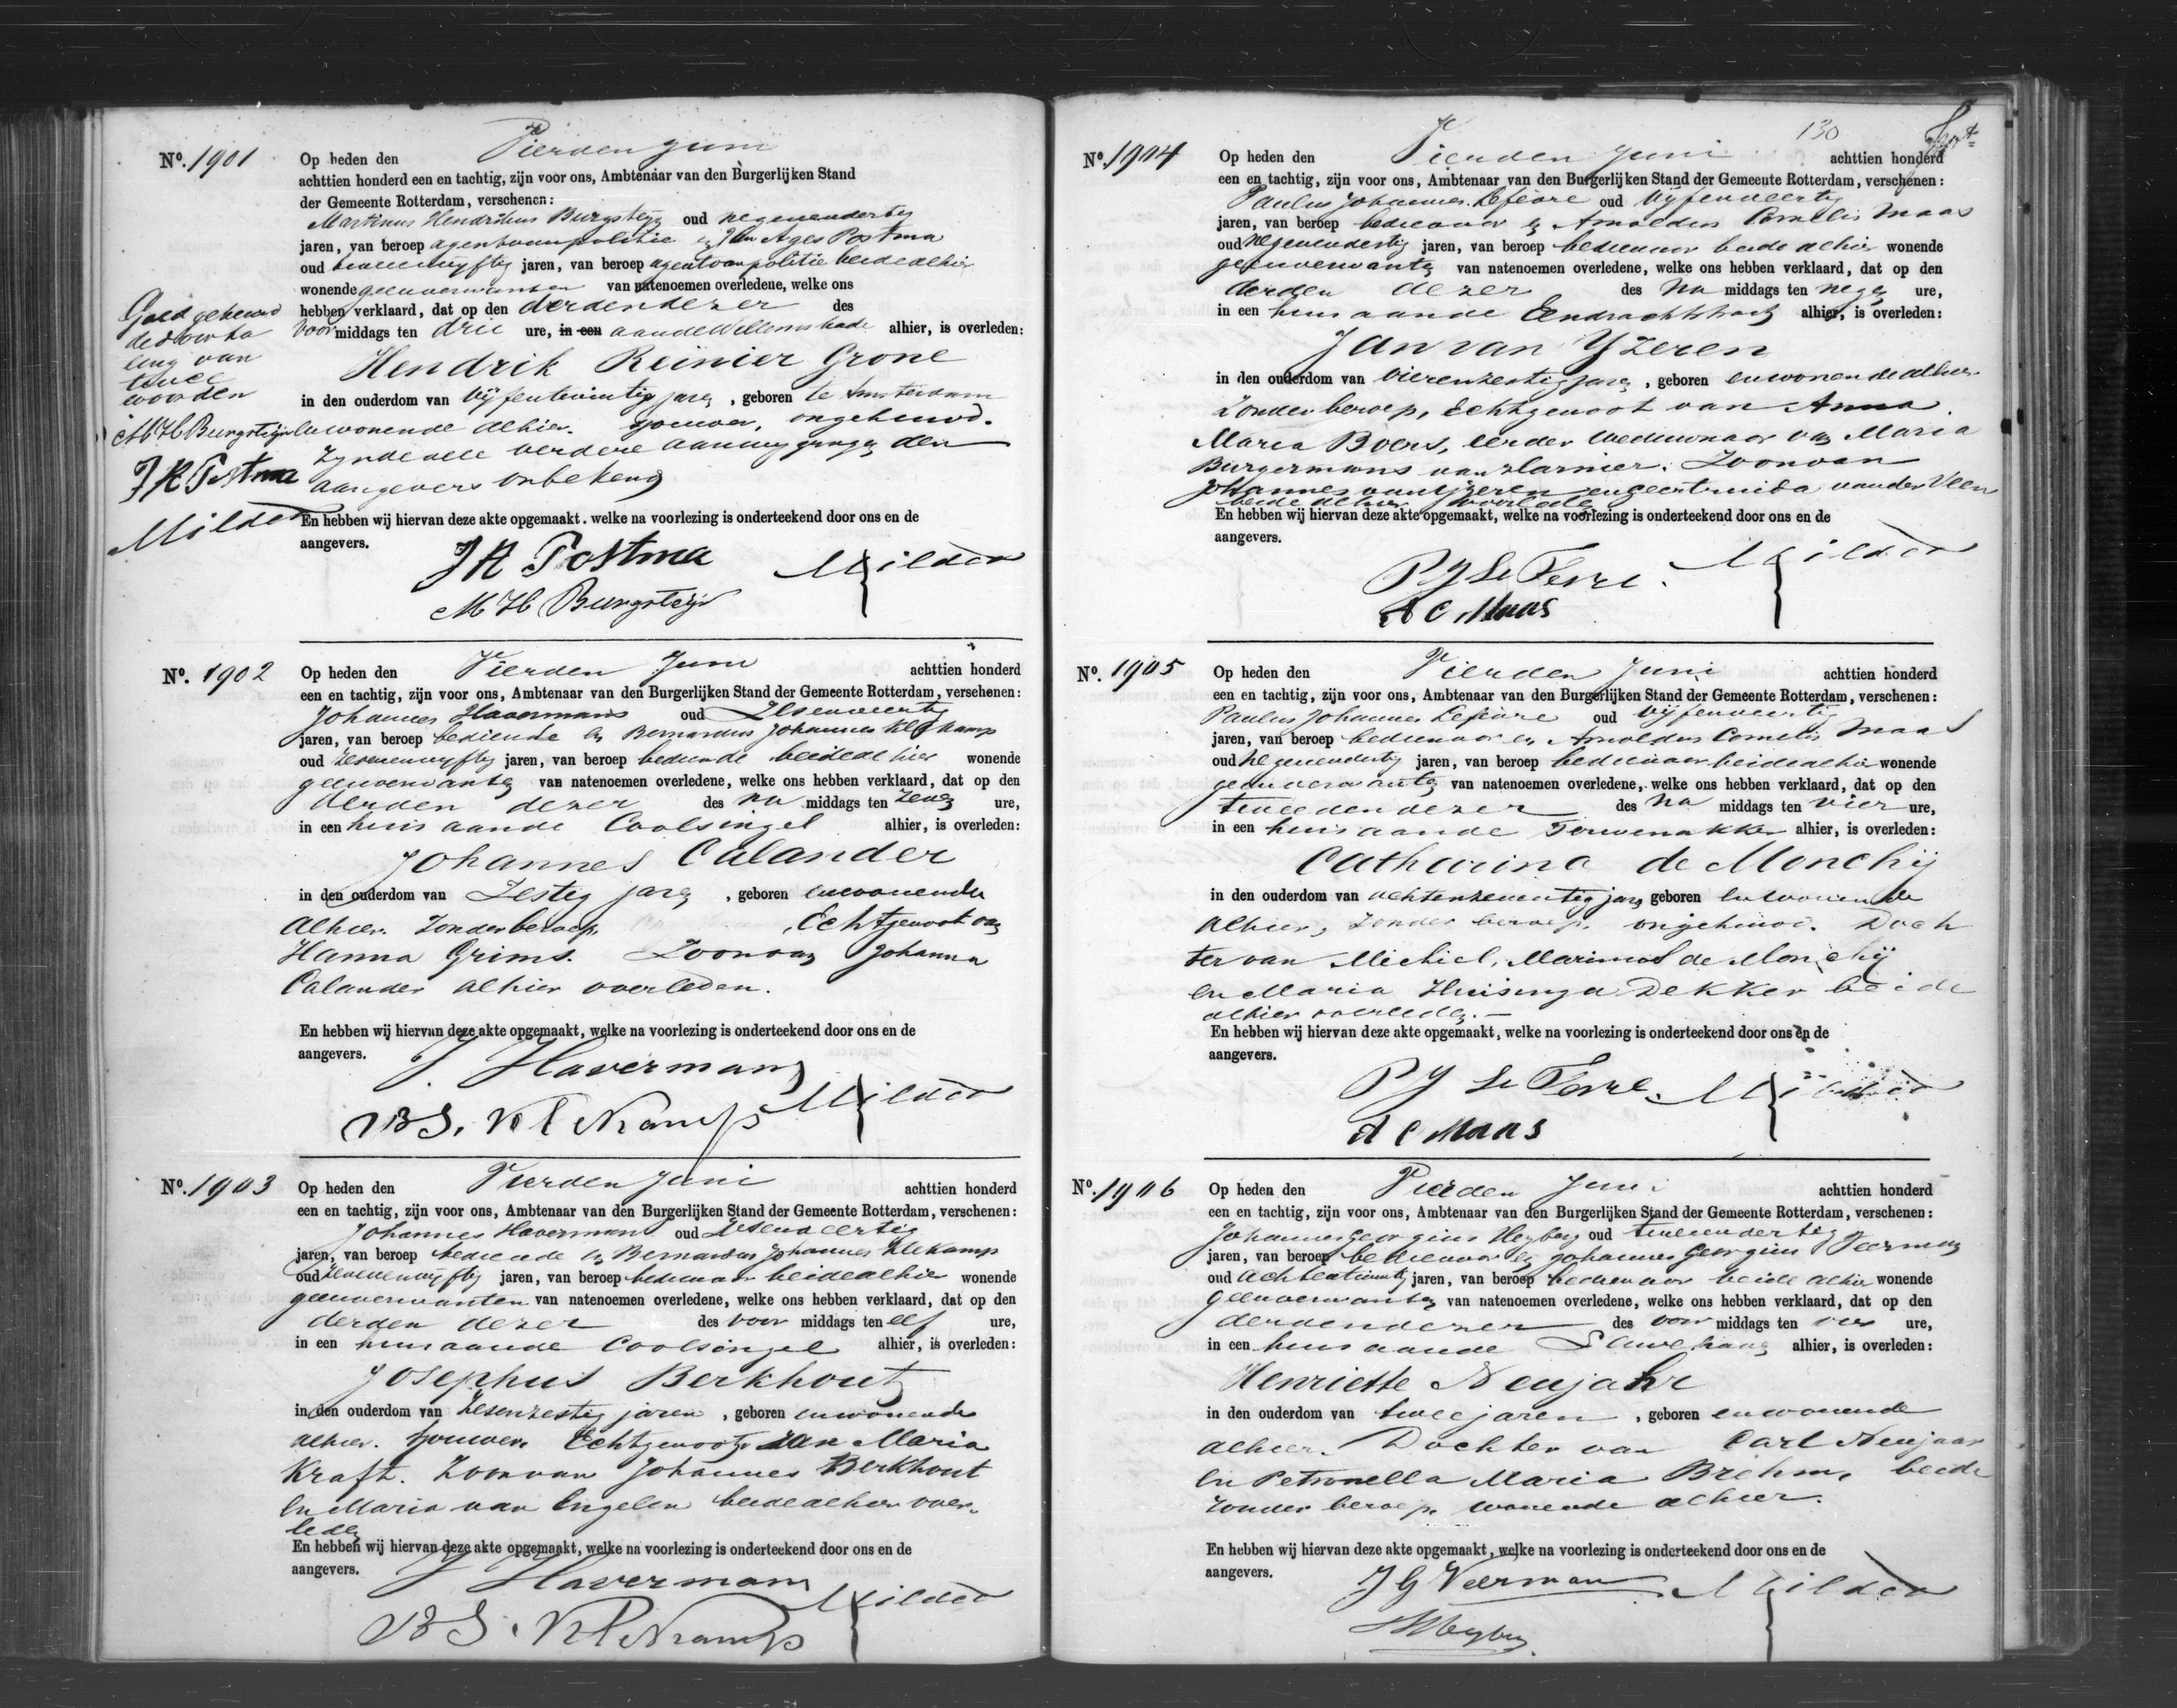 Nº. 1901
Op heden den Vierden Juni
achttien honderd een en tachtig, zijn voor ons, Ambtenaar van den Burgerlijken Stand
der Gemeente Rotterdam, verschenen:
Martinus Hendrikus Burgsteyn oud negenendertig
jaren, van beroep agent van politie en Postma
oud tweeenvyftig jaren, van beroep agent van politie beide alhier
wonende geenverwanten van natenoemen overledene, welke ons
hebben verklaard, dat op den derden dezer des
voor middags ten drie ure, in een aan de Willemskade alhier, is overleden:
Hendrik Reinier Grone
in den ouderdom van vyfentwintig jaren, geboren te Amsterdam
en wonende alhier. sjouwer, ongehuwd.
Zynde alle verdere aanwyzingen den
aangevers onbekend
En hebben wij hiervan deze akte opgemaakt, welke na voorlezing is onderteekend door ons en de
aangevers.
J R Postma Milder
M H Burgsteijn
Goedgekeurd
de doorha
ling van
twee
woorden
M H Burgsteijn
J R Postma
Milder
Nº. 1902
Op heden den Vierden Juni achttien honderd
een en tachtig, zijn voor ons, Ambtenaar van den Burgerlijken Stand der Gemeente Rotterdam, verschenen:
Johannes Havermans oud Zesenveertig
jaren, van beroep bediende en Bernardus Johannes Klekamp
oud Zevenenvyftig jaren, van beroep bediende beide alhier wonende
geenverwanten van natenoemen overledene, welke ons hebben verklaard, dat op den
derden dezer des na middags ten zeven ure,
in een huis aan de Coolsingel alhier, is overleden:
Johannes Calander
in den ouderdom van Zestig jaren, geboren en wonende
alhier. Zonder beroep, Echtgenoot van
Hanna Grims. Zoon van Johanna
Calander alhier overleden.
En hebben wij hiervan deze akte opgemaakt, welke na voorlezing is onderteekend door ons en de
aangevers.
J. Havermans Milder
B J. Klekamp
Nº. 1903
Op heden den Vierden Juni achttien honderd
een en tachtig, zijn voor ons, Ambtenaar van den Burgerlijken Stand der Gemeente Rotterdam, verschenen:
Johannes Havermans oud Zesenveertig
jaren, van beroep bediende en Bernardus Johannes Klekamp
oud Zevenenvyftig jaren, van beroep bedienaar beide alhier wonende
geenverwanten van natenoemen overledene, welke ons hebben verklaard, dat op den
derden dezer des voor middags ten elf ure,
in een huis aan de Coolsingel alhier, is overleden:
Josephus Berkhout
in den ouderdom van Zesenzestig jaren, geboren en wonende
alhier. Sjouwer. Echtgenoot van Maria
Kraft. Zoon van Johannes Berkhout
en Maria van Engelen beide alhier over-
leden
En hebben wij hiervan deze akte opgemaakt, welke na voorlezing is onderteekend door ons en de
aangevers.
J Havermans Milder
B J. Klekamp
130
Nº. 1904
Op heden den Vierden Juni achttien honderd
een en tachtig, zijn voor ons, Ambtenaar van den Burgerlijken Stand der Gemeente Rotterdam, verschenen:
Paulus Johannes Lefèvre oud Vyfenveertig
jaren, van beroep bedienaar en Arnoldus Cornelis Maas
oud negenendertig jaren, van beroep bedienaar beide alhier wonende
geenverwanten van natenoemen overledene, welke ons hebben verklaard, dat op den
derden dezer des na middags ten negen ure,
in een huis aan de Eendrachtstraat alhier, is overleden:
Jan van Yzeren
in den ouderdom van vierenzestig jaren, geboren en wonende alhier
Zonder beroep, Echtgenoot van Anna
Maria Boers, eerder weduwnaar van Maria
Burgermans van Zoon van
Johannes van Yzeren en Geertruida van der Veen
beide alhier overleden
En hebben wij hiervan deze akte opgemaakt, welke na voorlezing is onderteekend door ons en de
aangevers.
P J Le Fevre. Milder
A C Maas
Nº. 1905
Op heden den Vierden Juni achttien honderd
een en tachtig, zijn voor ons, Ambtenaar van den Burgerlijken Stand der Gemeente Rotterdam, verschenen:
Paulus Johannes Lefèvre oud vyfenveertig
jaren, van beroep bedienaar en Arnoldus Cornelis Maas
oud negenendertig jaren, van beroep bedienaar beide alhier wonende
geenverwanten van natenoemen overledene, welke ons hebben verklaard, dat op den
tweeden dezer des na middags ten vier ure,
in een huis aan de Terwenakker alhier, is overleden:
Catharina de Monchij
in den ouderdom van achtenzeventig jaren geboren en wonende
alhier, zonder beroep. ongehuwd. Doch
ter van Michiel Marinus de Monchij
en Maria Huisinga Dekker beide
alhier overleden.
En hebben wij hiervan deze akte opgemaakt, welke na voorlezing is onderteekend door ons en de
aangevers.
P J Le Fevre. Milder
A C Maas
Nº. 1906
Op heden den Vierden Juni achttien honderd
een en tachtig, zijn voor ons, Ambtenaar van den Burgerlijken Stand der Gemeente Rotterdam, verschenen:
Johannes Georgius Heyberg oud tweeendertig
jaren, van beroep bedienaar en Johannes Georgius Veerman
oud achtentwintig jaren, van beroep bedienaar beide alhier wonende
geenverwanten van natenoemen overledene, welke ons hebben verklaard, dat op den
derden dezer des voor middags ten vier ure,
in een huis aan de alhier, is overleden:
Henriette Neujahr
in den ouderdom van twee jaren, geboren en wonende
alhier. Dochter van Carl Neujaar
en Petronella Maria Brehm, beide
zonder beroep, wonende alhier.
En hebben wij hiervan deze akte opgemaakt, welke na voorlezing is onderteekend door ons en de
aangevers.
J G Veerman Milder